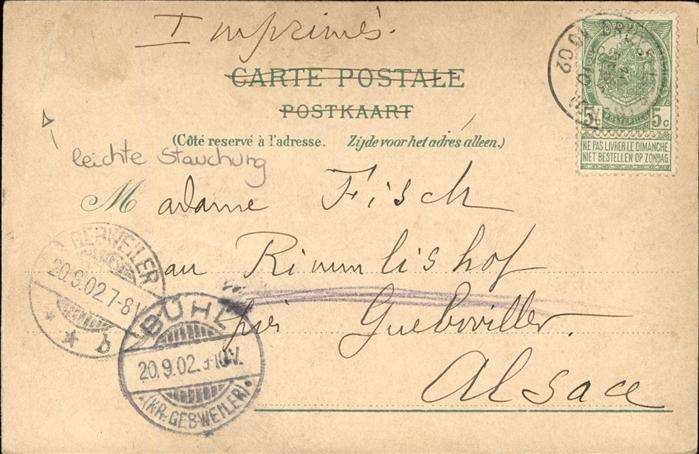 Imprimés.
CARTE POSTALE
POSTKAART
(Côté reservé à l'adresse. Zijde voor het adres alleen.)
leichte Stauchung
Madame Fisch
au Rimmlishof
près Guebwiller.
Alsace
5c 5c
NE PAS LIVRER LE DIMANCHE
NIET BESTELLEN OP ZONDAG
GEBWEILER
20.9.02.7-8V.
b
BÜHL
20.9.02.
(KR. GEBWEILER)
02